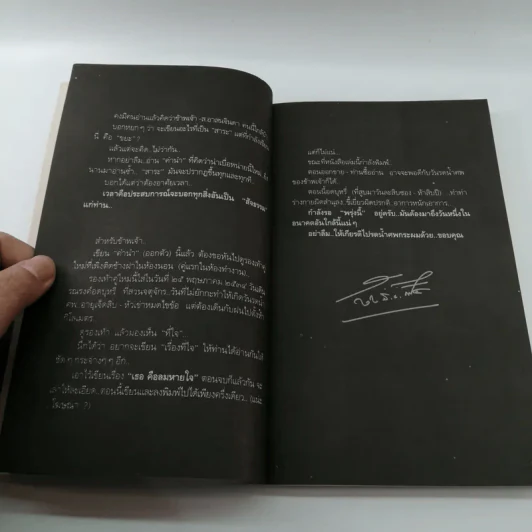 คงมีคนอ่านแล้วคิดว่าข้าพเจ้า
บอกหยกๆ ว่า จะเขียนอะไรที่เป็น "สาระ"
นี้ คือ "ขยะ"?
แล้วแต่จะคิด..ไม่ว่ากัน..
หากอย่าลืม..อ่าน "คำนำ" ที่คิดว่าน่าเบื่อหน่ายนี้ใหม่
นานมาอ่านซ้ำ.. "สาระ" มันจะปรากฏขึ้นทุกและทุกที..
บอกได้แต่ว่าต้องอาศัยเวลา..
เวลาคือประสบการณ์จะบอกทุกสิ่งอันเป็น "สัจธรรม"
แก่ท่าน..
สำหรับข้าพเจ้า..
เขียน "คำนำ" (ออกตัว) นี้แล้ว ต้องขอหันไปดูรองเท้าคู่
ใหม่ที่เพิ่งตัดช้างฝาในห้องนอน (คู่แรกในห้องทำงาน)..
รองเท้าคู่ใหม่นี้ใส่ในวันที่ ๒๕ พฤษภาคม ๒๕๓๕
ดูรองเท้า แล้วมองเห็น "ที่ใจ"..
นึกได้ว่า อยากจะเขียน "เรื่องที่ใจ" ให้ท่านได้อ่านกันให้
ชัดๆ กระจ่างๆ อีก..
เอาไว้เขียนเรื่อง "เธอ คือลมหายใจ" ตอนจบก็แล้วกัน จะ
เล่าให้ละเอียด..ตอนนี้เขียนและลงพิมพ์ไปได้เพียงครึ่งเดียว..
แต่ก็ไม่แน่..
ขณะที่หนังสือเล่มนี้กำลังพิมพ์..
ตอนออกขาย - ท่านซื้ออ่าน อาจจะพอดีกับวันรดน้ำศพ
ของข้าพเจ้าก็ได้..
ตอนนี้อดบุหรี่ (ที่สูบมาวันละสิบซอง - ห้าสิบปี) ..ทำท่า
ร่างกายผิดสำแดง..ขี้เยี่ยวผิดปรกติ..อาการหนักเอาการ..
กำลังรอ "พรุ่งนี้" อยู่ครับ..มันต้องมาถึงวันหนึ่งใน
อนาคตอันใกล้นี้แน่ๆ
อย่าลืม..ให้เกียรติไปรดน้ำศพกระผมด้วย..ขอบคุณ